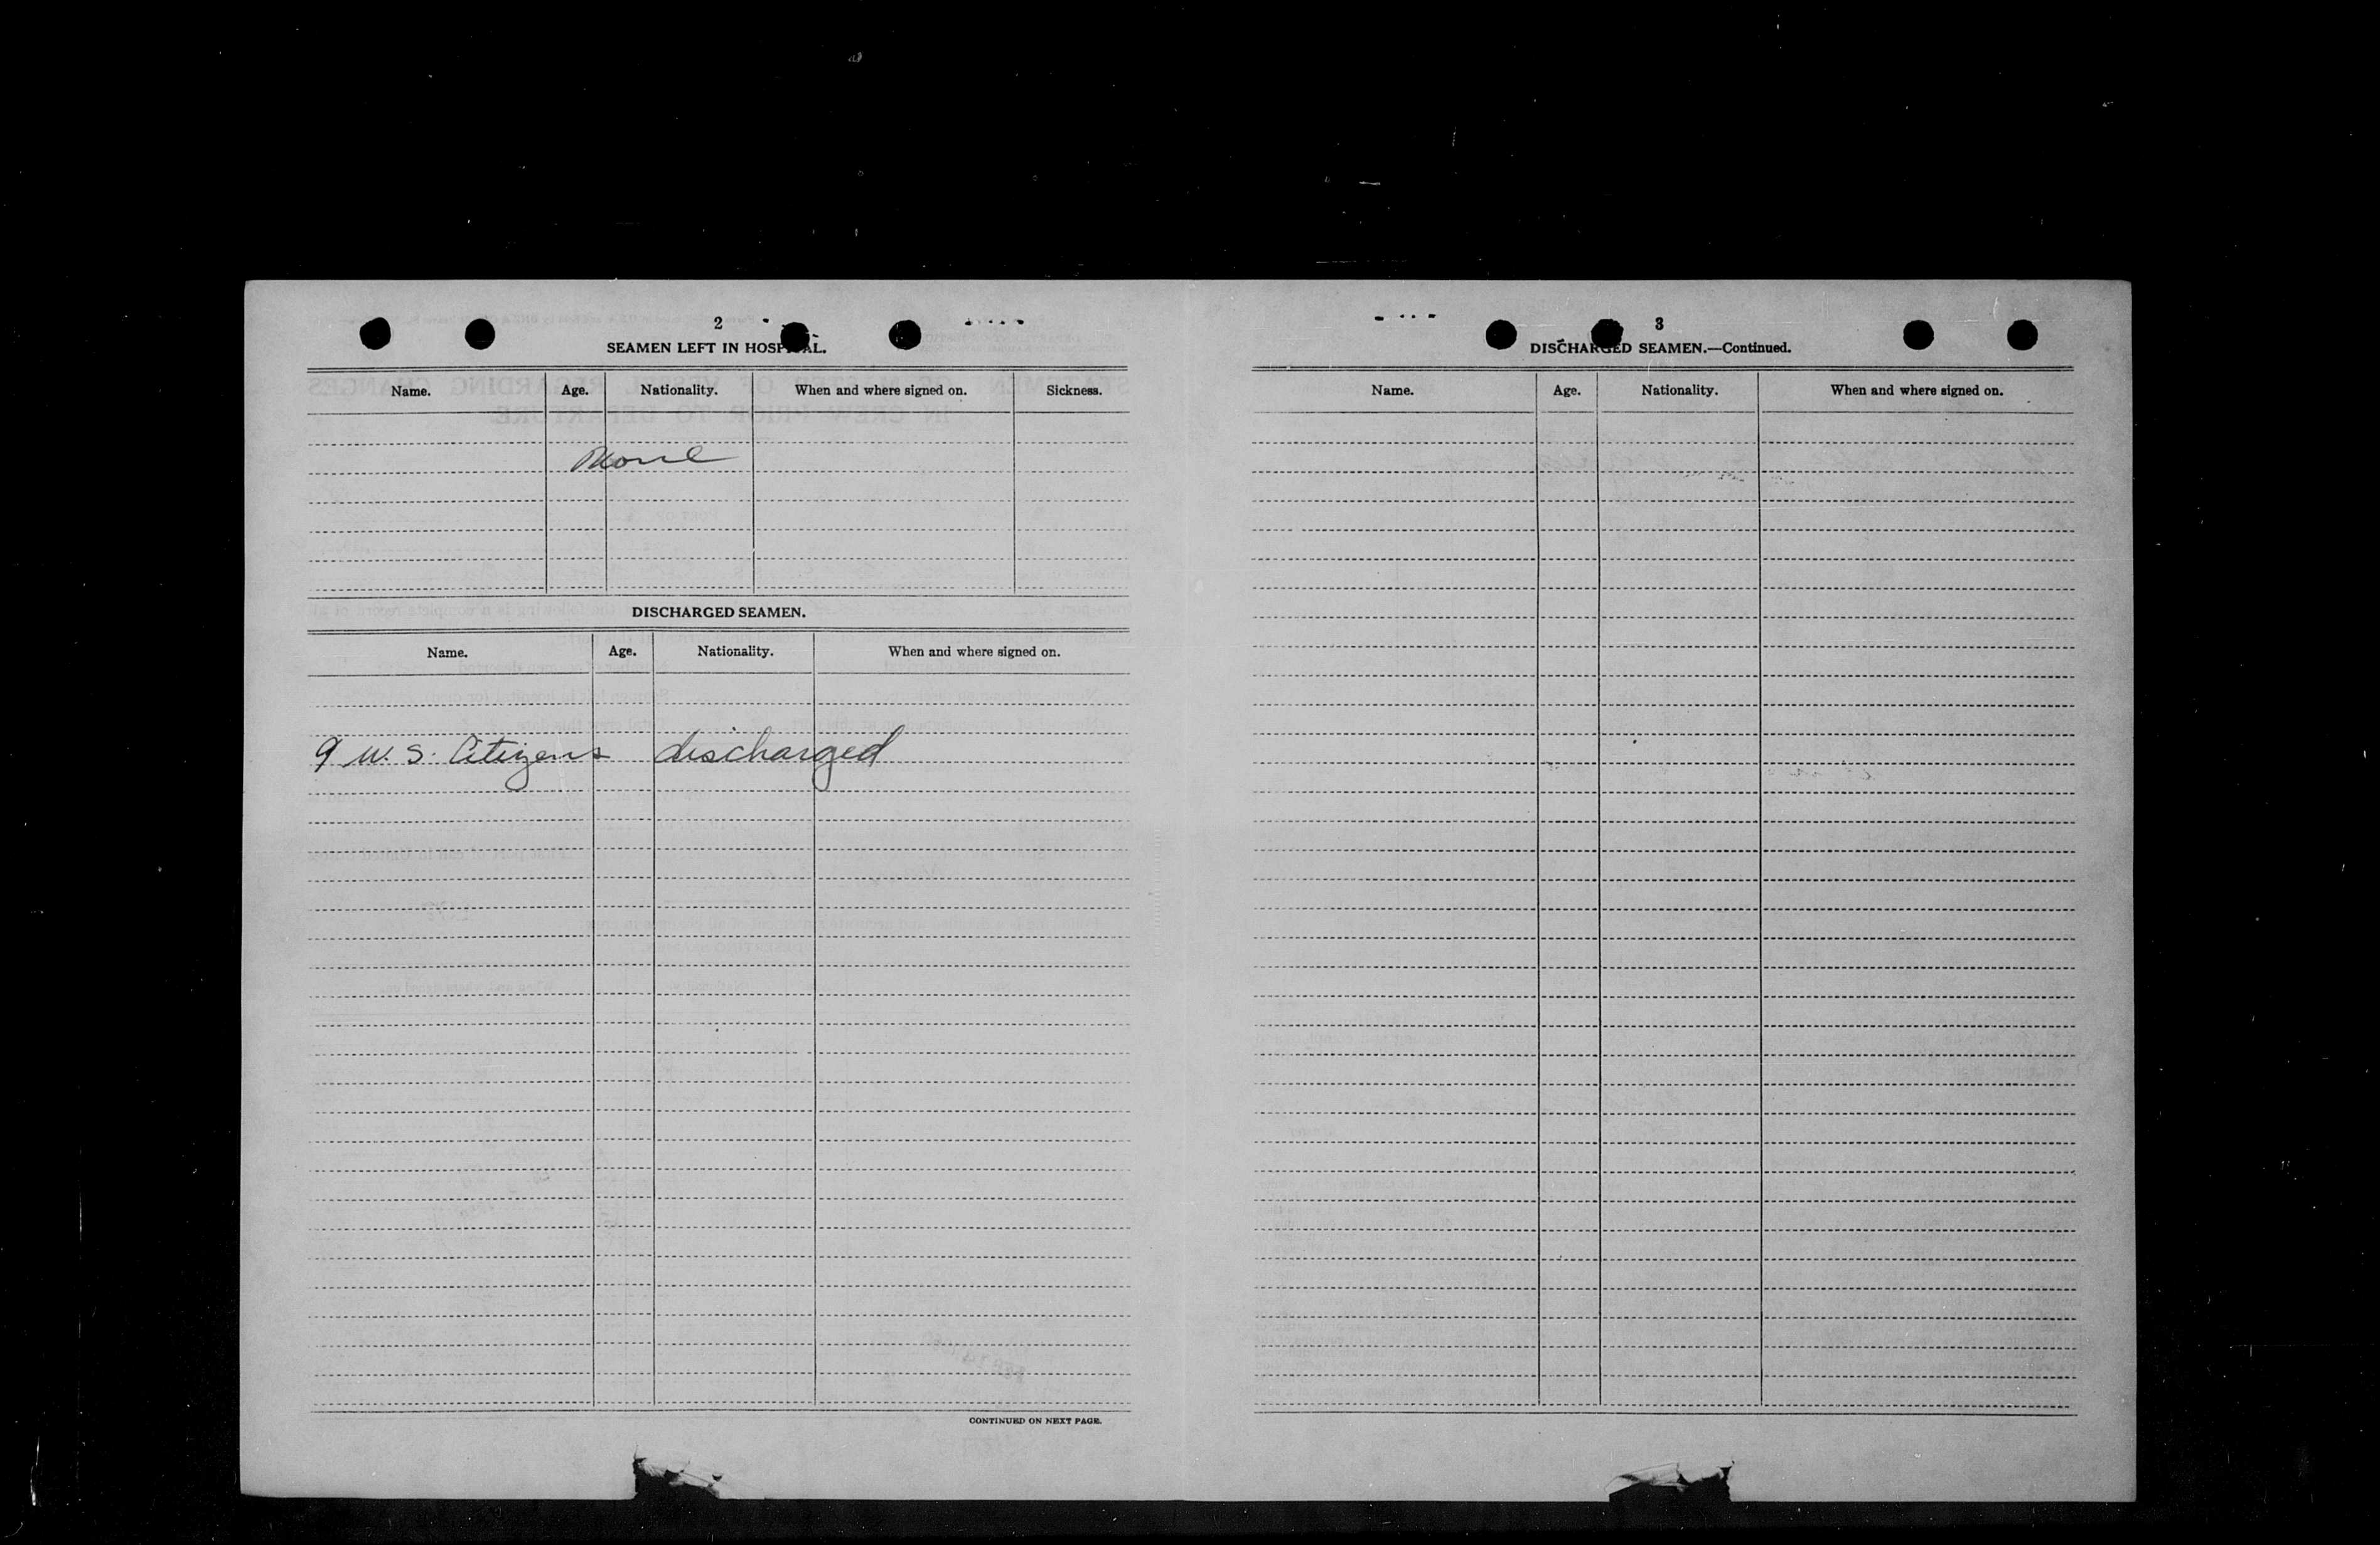 2
SEAMEN LEFT IN HOSPITAL.
Name. Age. Nationality. When and where signed on. Sickness.
None
DISCHARGED SEAMEN.
Name. Age. Nationality. When and where signed on.
9 U. S. Citizens discharged
CONTINUED ON NEXT PAGE.
3
DISCHARGED SEAMEN.—Continued.
Name. Age. Nationality. When and where signed on.